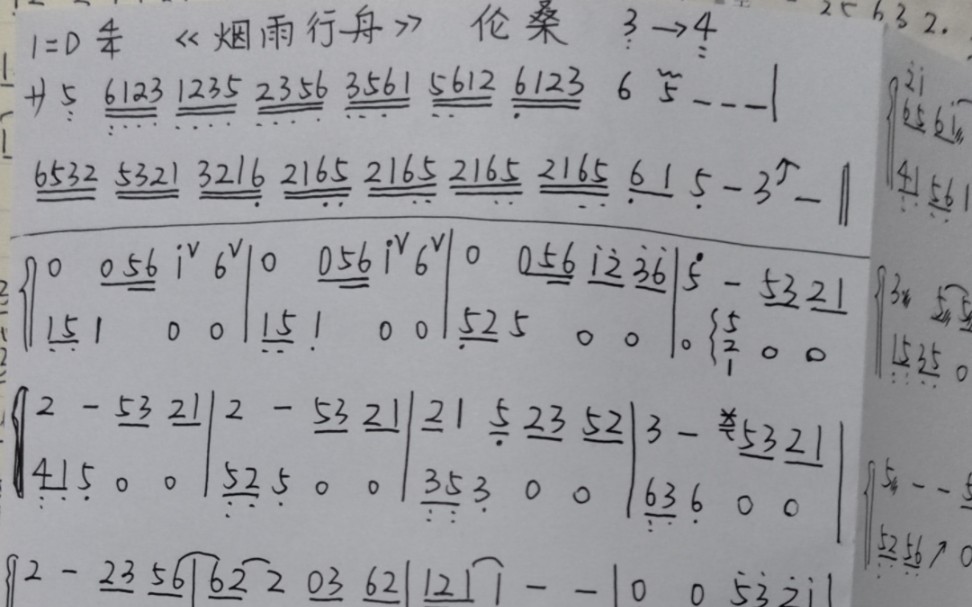 1=D 4/4 《烟雨行舟》 伦桑 3→4
5 6123 1235 2356 3561 5612 6123 6 5 - - - |
6532 5321 3216 2165 2165 2165 2165 61 5 - 3↑ - ‖
0 056 i∨ 6∨ | 0 056 i∨ 6∨ | 0 056 i2 36 | 5 - 53 21
15 1 0 0 | 15 1 0 0 | 52 5 0 0 | 0 5 2 1 0 0
2 - 53 21 | 2 - 53 21 | 21 5 23 52 | 3 - 53 21 |
41 5 0 0 | 52 5 0 0 | 35 3 0 0 | 63 6 0 0
2 - 23 56 | 62 2 03 62 | 121 1 - - | 0 0 53 21 |
2i
65 6i
41 56 1
3
15 35 0
5 - - 5
52 56 ↗ 0